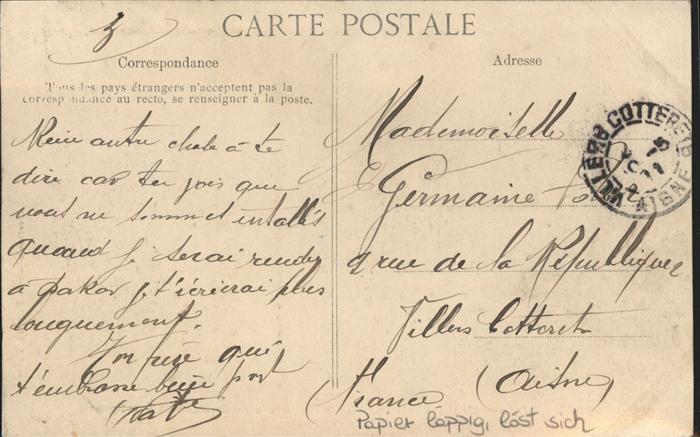 CARTE POSTALE
Correspondance
Tous les pays étrangers n'acceptent pas la
correspondance au recto, se renseigner à la poste.
Rien autre chose à te
dire car tu vois que
nous ne sommes installés
quand je serai rendu
à Dakar je t'écrirai plus
longuement.
Ton qui
t'embrasse bien fort
Adresse
Mademoiselle
Germaine
9 rue de la République
Villers Cotterets
(Aisne)
France
VILLERS-COTTERETS
AISNE
Papier läppig, löst sich